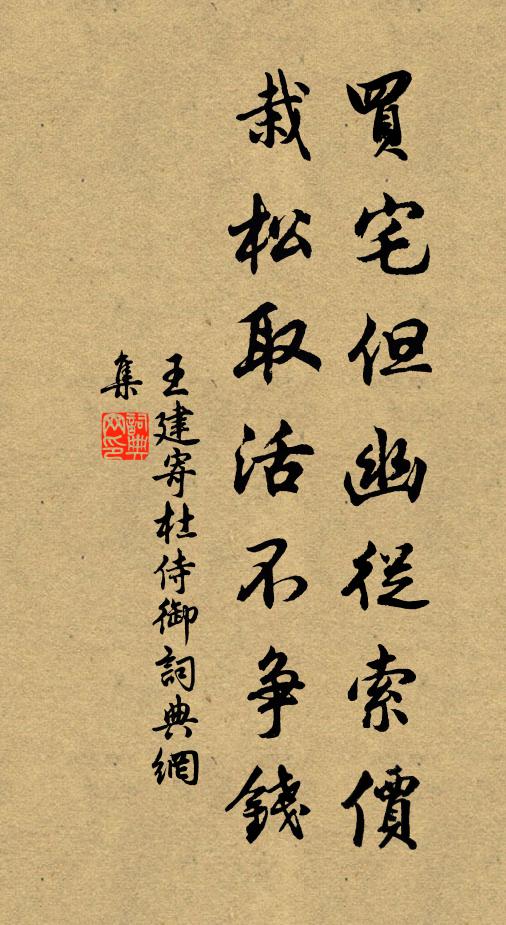 買宅但幽從索價
栽松取活不爭錢
王建寄杜侍御詞典網
集
詞典網印